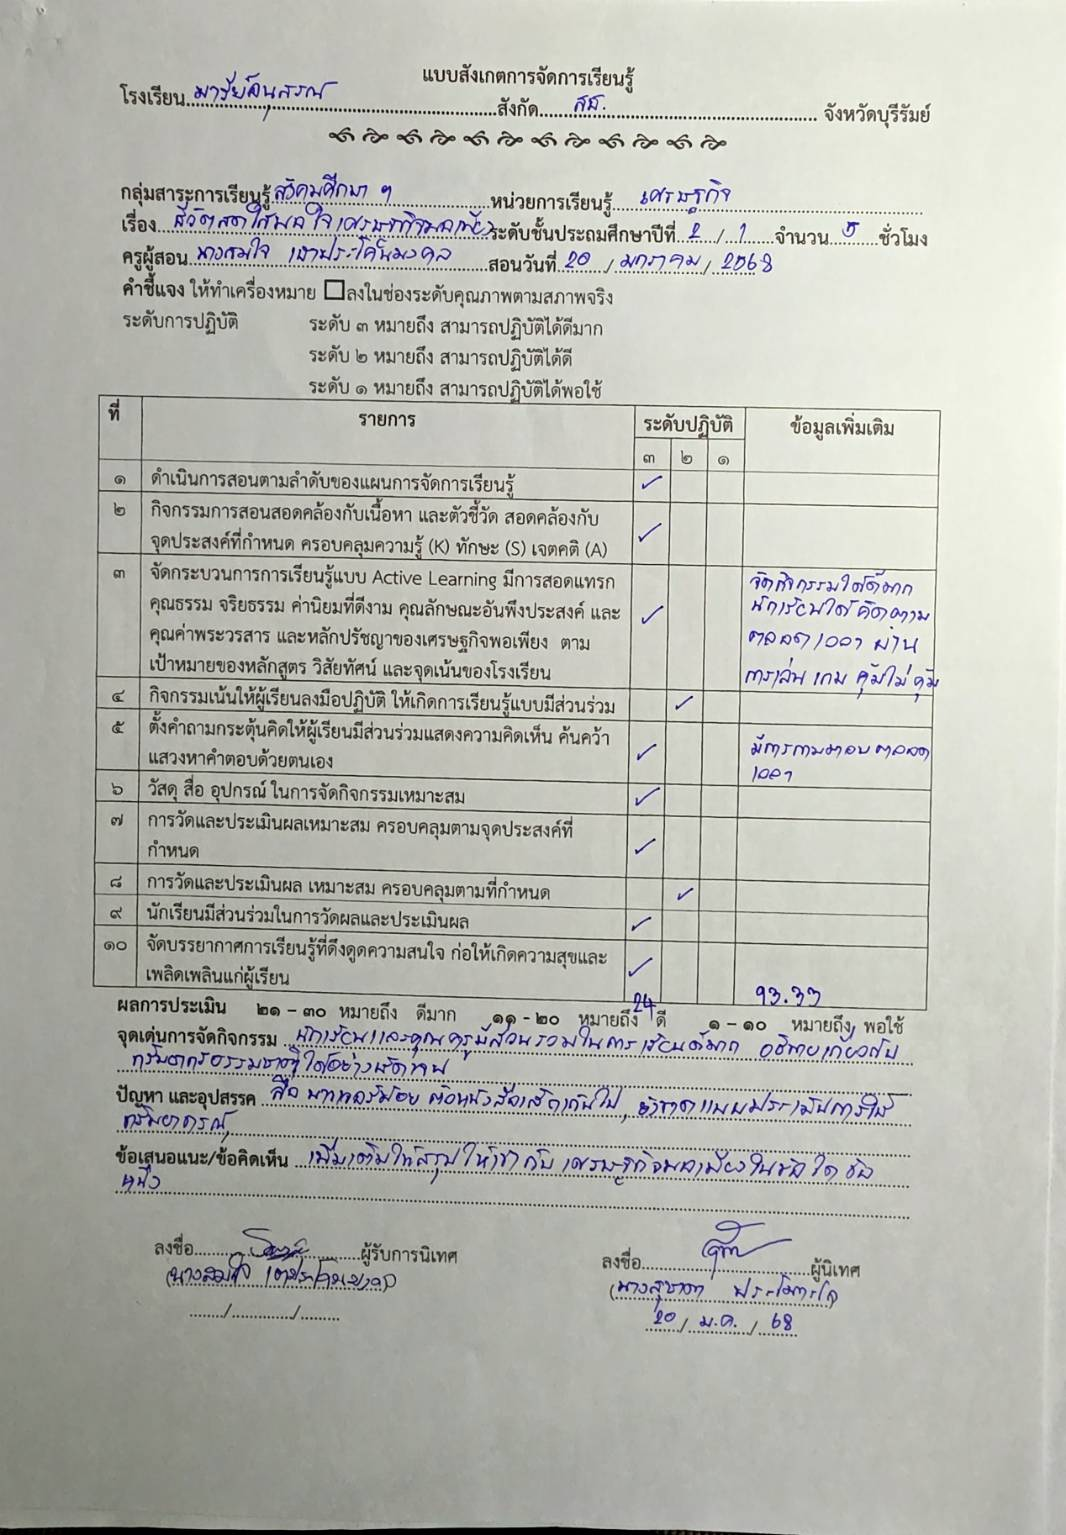 แบบสังเกตการจัดการเรียนรู้
โรงเรียน มารีย์อนุสรณ์ สังกัด สช. จังหวัดบุรีรัมย์
กลุ่มสาระการเรียนรู้ สังคมศึกษา ฯ หน่วยการเรียนรู้ เศรษฐกิจ
เรื่อง ชีวิตสดใสพอใจเศรษฐกิจพอเพียง ระดับชั้นประถมศึกษาปีที่ 2 / 1 จำนวน 5 ชั่วโมง
ครูผู้สอน นางสมใจ เจาประโคนมงคล สอนวันที่ 20 / มกราคม / 2568
คำชี้แจง ให้ทำเครื่องหมาย ☐ ลงในช่องระดับคุณภาพตามสภาพจริง
ระดับการปฏิบัติ ระดับ ๓ หมายถึง สามารถปฏิบัติได้ดีมาก
ระดับ ๒ หมายถึง สามารถปฏิบัติได้ดี
ระดับ ๑ หมายถึง สามารถปฏิบัติได้พอใช้
ที่ รายการ ระดับปฏิบัติ ข้อมูลเพิ่มเติม
๓ ๒ ๑
๑ ดำเนินการสอนตามลำดับของแผนการจัดการเรียนรู้ ✓
๒ กิจกรรมการสอนสอดคล้องกับเนื้อหา และตัวชี้วัด สอดคล้องกับ
จุดประสงค์ที่กำหนด ครอบคลุมความรู้ (K) ทักษะ (S) เจตคติ (A) ✓
๓ จัดกระบวนการการเรียนรู้แบบ Active Learning มีการสอดแทรก จัดกิจกรรมได้ดีมาก
คุณธรรม จริยธรรม ค่านิยมที่ดีงาม คุณลักษณะอันพึงประสงค์ และ ✓ นักเรียนได้คิดตาม
คุณค่าพระวรสาร และหลักปรัชญาของเศรษฐกิจพอเพียง ตาม ตลอดเวลา ผ่าน
เป้าหมายของหลักสูตร วิสัยทัศน์ และจุดเน้นของโรงเรียน การเล่น เกม คุ้มไม่คุ้ม
๔ กิจกรรมเน้นให้ผู้เรียนลงมือปฏิบัติ ให้เกิดการเรียนรู้แบบมีส่วนร่วม ✓
๕ ตั้งคำถามกระตุ้นคิดให้ผู้เรียนมีส่วนร่วมแสดงความคิดเห็น ค้นคว้า ✓ มีการถามตอบตลอด
แสวงหาคำตอบด้วยตนเอง เวลา
๖ วัสดุ สื่อ อุปกรณ์ ในการจัดกิจกรรมเหมาะสม ✓
๗ การวัดและประเมินผลเหมาะสม ครอบคลุมตามจุดประสงค์ที่
กำหนด ✓
๘ การวัดและประเมินผล เหมาะสม ครอบคลุมตามที่กำหนด ✓
๙ นักเรียนมีส่วนร่วมในการวัดผลและประเมินผล ✓
๑๐ จัดบรรยากาศการเรียนรู้ที่ดึงดูดความสนใจ ก่อให้เกิดความสุขและ
เพลิดเพลินแก่ผู้เรียน ✓
24 93.33
ผลการประเมิน ๒๑ – ๓๐ หมายถึง ดีมาก ๑๑ – ๒๐ หมายถึง ดี ๑ – ๑๐ หมายถึง พอใช้
จุดเด่นการจัดกิจกรรม นักเรียนและคุณครูมีส่วนร่วมในการเรียนดีมาก อธิบายเกี่ยวกับ
ทรัพยากรธรรมชาติได้อย่างชัดเจน
ปัญหา และอุปสรรค สื่อ ตัวหนังสือเล็กเกินไป, ยังขาดแบบประเมินการใช้
ทรัพยากรณ์,
ข้อเสนอแนะ/ข้อคิดเห็น เพิ่มเติมให้สรุป ให้เข้ากับ เศรษฐกิจพอเพียงในข้อใด ข้อ
หนึ่ง
ลงชื่อ ผู้รับการนิเทศ ลงชื่อ ผู้นิเทศ
(นางสมใจ เจาประโคนมงคล) (นางสุชาดา )
/ / 20 / ม.ค. / 68